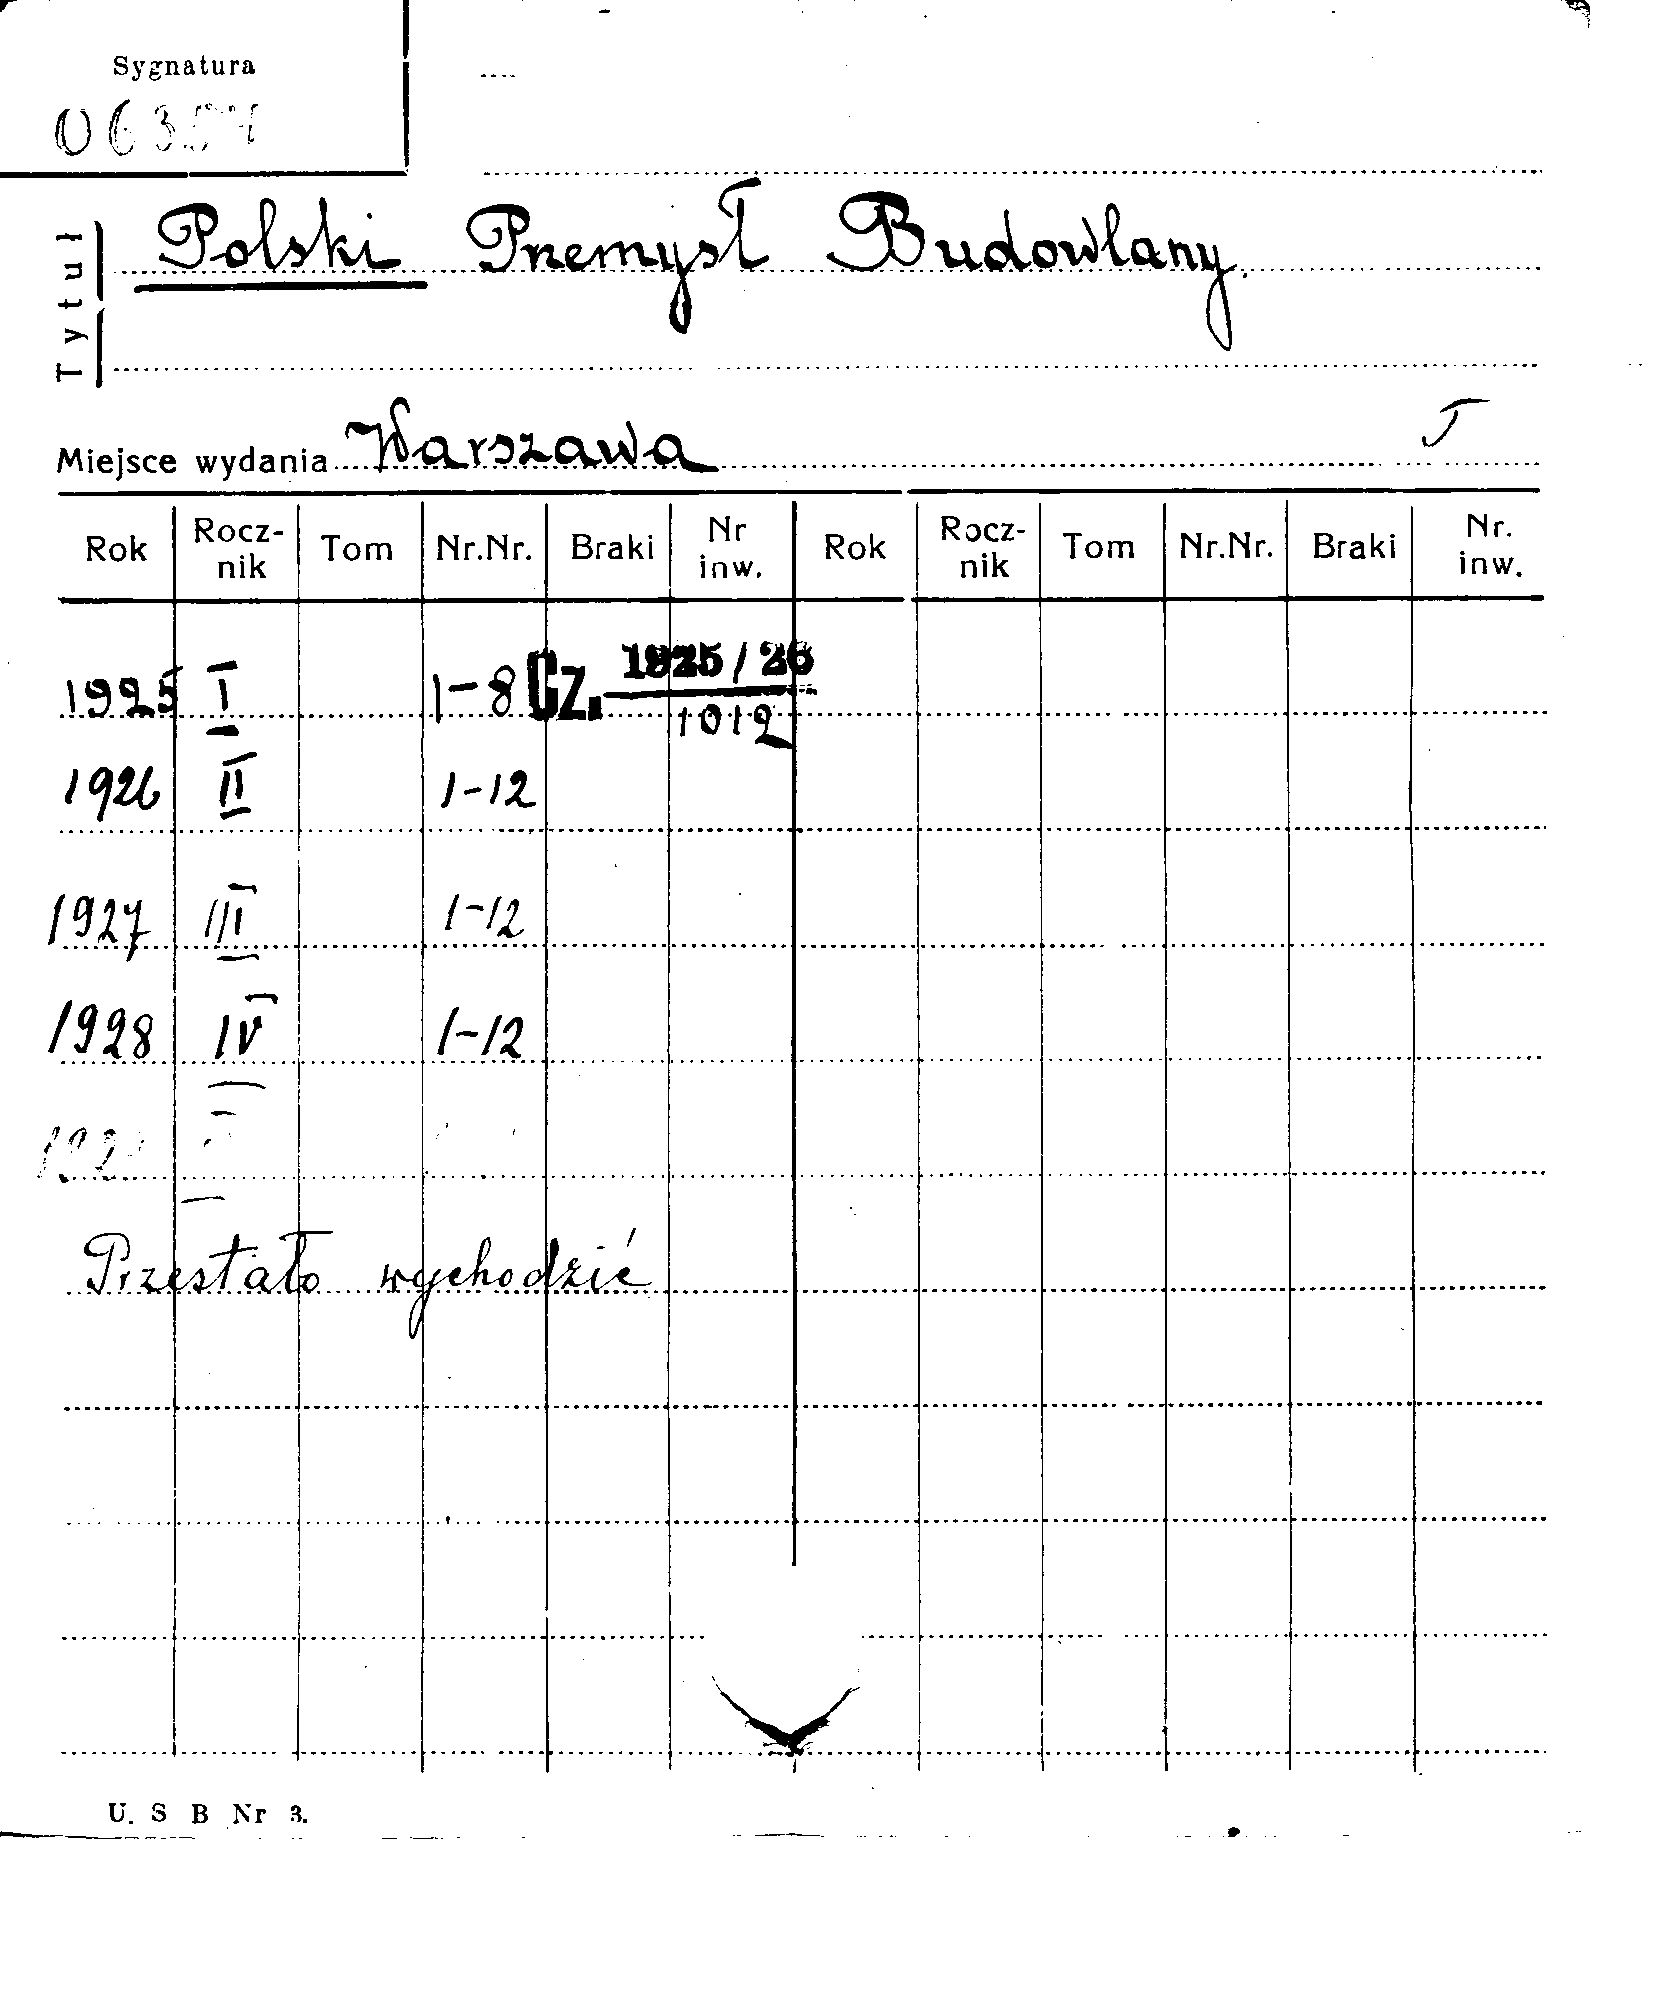 Sygnatura
Tytuł
Polski Przemysł Budowlany.
Miejsce wydania Warszawa
Rok Rocz-nik Tom Nr.Nr. Braki Nr inw. Rok Rocz-nik Tom Nr.Nr. Braki Nr. inw.
1925 I 1-8 Cz. 1925/26
1012
1926 II 1-12
1927 III 1-12
1928 IV 1-12
Przestało wychodzić
U. S B Nr 3.